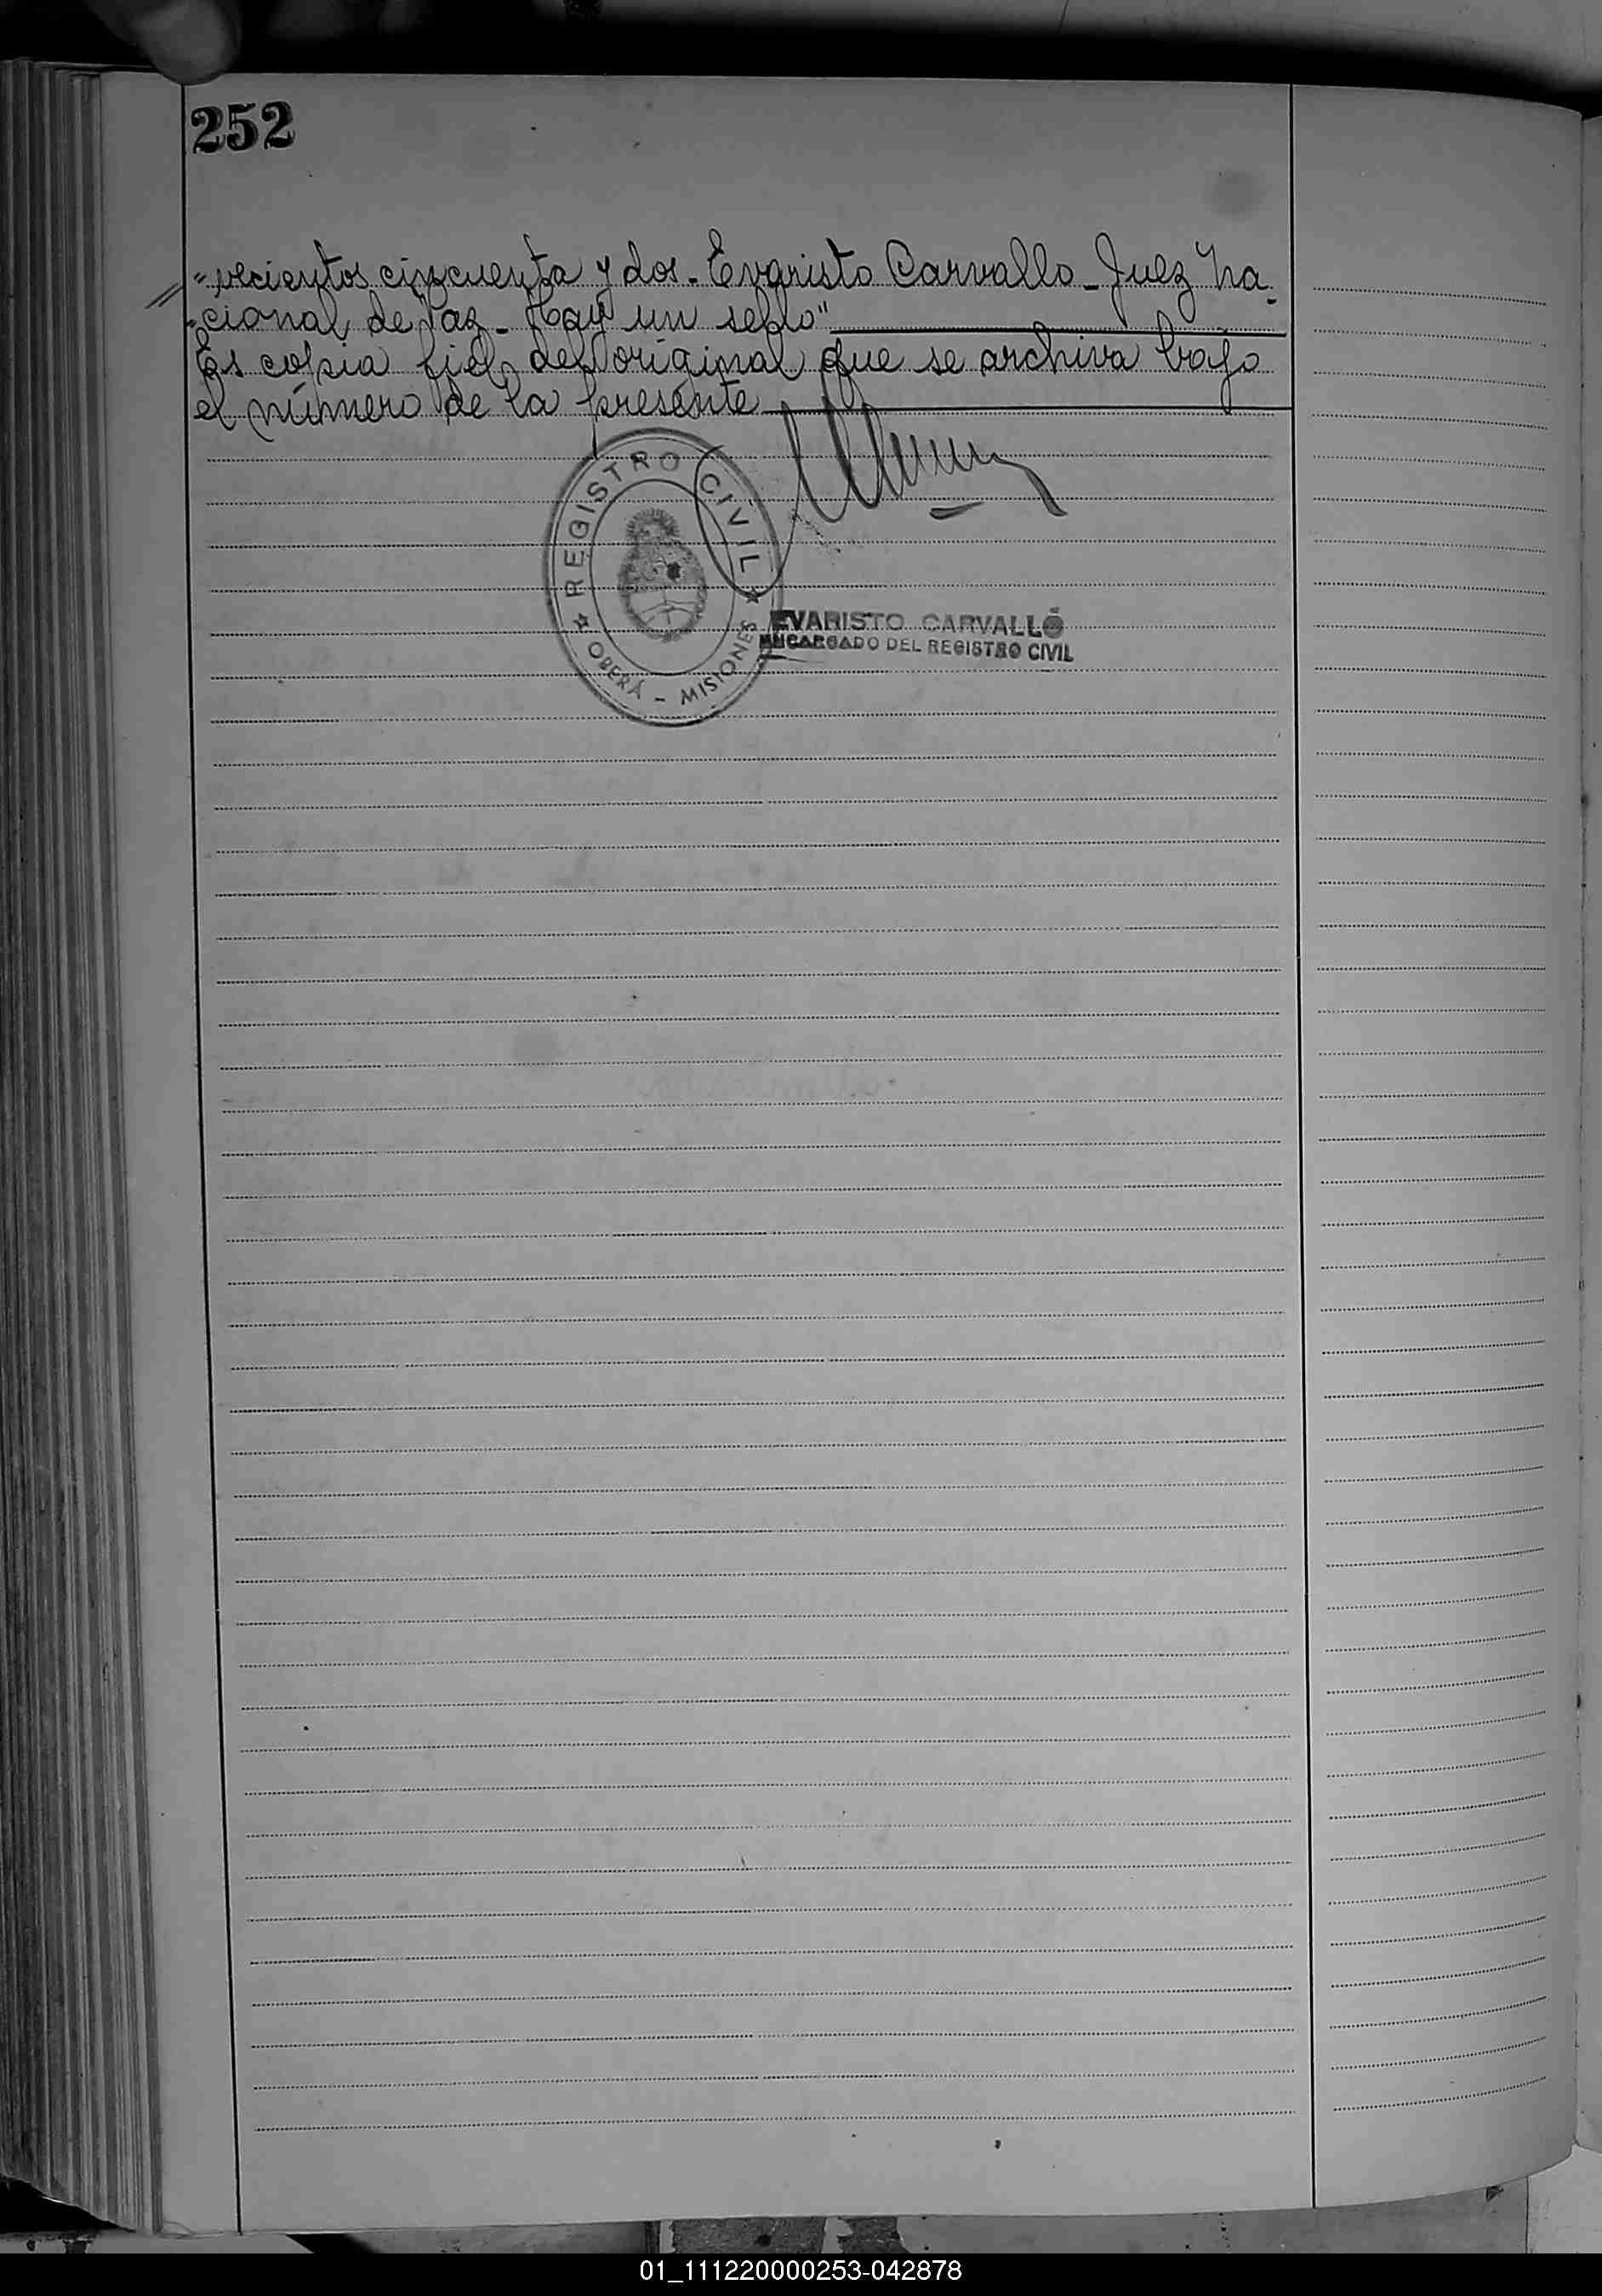 252
=vecientos cincuenta y dos. Evaristo Carvallo - Juez Na-
-cional de Paz - Hay un sello"
Es copia fiel del original que se archiva bajo
el número de la presente
REGISTRO CIVIL
OBERÁ - MISIONES
EVARISTO CARVALLO
ENCARGADO DEL REGISTRO CIVIL
01_111220000253-042878